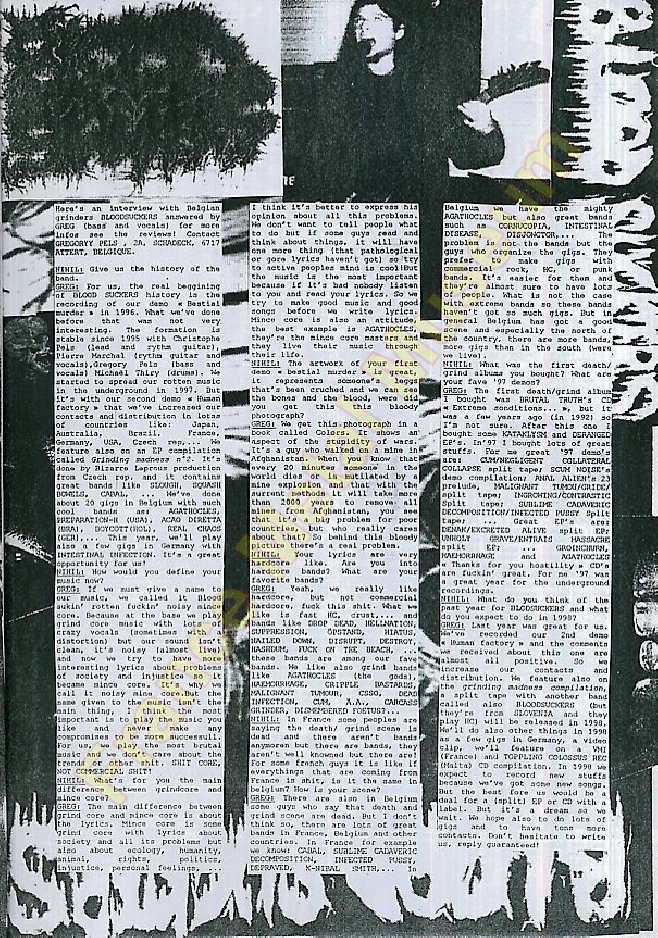 Here's an interview with Belgian
grinders BLOODSUCKERS answered by
GREG (bass and vocals) for more
infos see the reviews! Contact
GREGORYY PELS , 2A, SCHADECK, 6717
ATTERT, BELGIQUE.
NIHIL: Give us the history of the
band.
GREG: For us, the real beggining
of BLOOD SUCKERS history is the
recording of our demo « Bestial
murder » in 1996. What we've done
before that was no very
interesting. The formation is
stable since 1995 with Christophe
Pels (lead and rythm guitar),
Pierre Marchal (rythm guitar and
vocals),Gregory Pels (bass and
vocals) Michaël Thiry (drums). We
started to spread our rotten music
in the underground in 1997. But
it's with our second demo « Human
factory » that we've increased our
contacts and distribution in lots
of countries like: Japan,
Australia, Brasil, France,
Germany, USA, Czech rep,... We
feature also on an EP compilation
called Grinding madness n°2. It's
done by Bizarre Leprous production
from Czech rep. and it contains
great bands like SLOUGH, SQUASH
BOWELS, CABAL, ... We've done
about 20 gigs in Belgium with such
cool bands as: AGATHOCLES,
(USA), ACAO DIRETTA
(BRA), BOYCOT(HOL), REAL CHAOS
(GER),... This year, we'll play
also a few gigs in Germany with
INTESTINAL INFECTION. It's a great
opportunity for us!
NIHIL: How would you define your
music now?
GREG: If we must give a name to
our music, we called it Blood
sukin' rotten fuckin' noisy mince
core. Because at the base we play
grind core musick with lots of
crazy vocals (sometimes with
distortion) but our sound isn't
clean, it's noisy (almost live)
and now we try to have more
interesting lyrics about problems
of society and injustice so it
became mince core. it's why we
call it noisy mince core.But the
name given to the music isn't the
main thing, I think the most
important is to play the music you
like and never make any
compromises to be more successull.
For us, we play the most brutal
music and we don't care about the
trends or other shit. SHIT CORE,
NOT COMMERCIAL SHIT!
NIHIL: What's for you the main
difference between grindcore and
mince core?
GREG: The main difference between
grind core and mince core is about
the lyrics. Mince core is some
grind core with lyrics about
society and all its problems but
also about ecology, humanity,
animal, rights, politics,
injustice, personal feelings, ...
I think it's better to express his
opinion about all this problems.
We don't want to tell people what
to do but if some guys read and
think about things, it will have
one more thing (that pathological
or gore lyrics haven't got) so try
to active peoples mind is cool!But
the music is the most important
because if it's bad nobody listen
to you and read your lyrics. So we
try to make good music and good
songs before we write lyrics.
Mince core is also an attitude,
the best example is AGATHOCLES,
they're the mince core masters and
they live their music through
their life.
NIHIL: The artwork of your first
demo « bestial murder » is great,
it represents someone's legs
that's been cruched and we can see
the bones and the blood, were did
you get this this bloody
photograph?
GREG: We get this photograph in a
book called Colors. It shows an
aspect of the stupidity of wars.
It's a guy who walked on a mine in
Afghanistan. When you know that
every 20 minutes someone in the
world dies or is mutilated by a
mine explosion and that with the
current methods it will take more
than 2000 years to remove all
mines from Afghanistan, you see
that it's a big problem for poor
countries, but who really cares
about that? So behind this bloody
picture there's a real problem.
NIHIL: Your lyrics are very
hardcore like. Are you into
hardcore bands? What are your
favorite bands?
GREG: Yeah, we really like
hardcore, but not commercial
hardcore, fuck this shit. What we
like is fast HC, crust,... and
bands like DROP DEAD, HELLNATION,
SUPPRESSION, ÖPSTAND, HIATUS,
NAILED DOWN, DISRUPT, DESTROY,
RASHDUM, FUCK ON THE BEACH, ...
these bands are among our fave
bands. We like also grind bands
like AGATHOCLES (the gods),
HAEMORRHAGE, CRIPPLE BASTARDS,
MALIGNANT TUMOUR, DEEP
INFECTION, CUM, CARCASS
GRINDER, DISMEMBERED FOETUS?...
NIHIL: In France some peoples are
saying the death/ grind scene is
dead and there aren't bands
anymoren but there are bands, they
aren't well knowned but there are!
For some french guys it is like if
everythings that are coming from
France is shit, is it the same in
belgium? How is your scene?
GREG: There are also in Belgium
some guys who say that death and
grind scene are dead. But I don't
think so, there are lots of great
bands in France, Belgium and other
countries. In France for example
we know: CABAL, SUBLIME CADAVERIC
DECOMPOSITION, INFECTED PUSSY,
DEPRAVED, K-NIBAL SMITH,... In
Belgium we have the mighty
AGATHOCLES but also great bands
such as CORNUCOPIA, INTESTINAL
DISEASE, ... The
problem is not the bands but the
guys who organize the gigs. They
prefer to make gigs with
commercial rock, HC, or punk
bands. It's easier for them and
they're almost sure to have lots
of people. What is not the case
with extreme bands so these bands
haven't got so much gigs. But in
general Belgium has got a good
scene and especially the north of
the country, there are more bands,
more gigs than in the south (were
we live).
NIHIL: What was the first death/
grind albums you bought? What are
your fave '97 demos?
GREG: The first death/grind album
I bought was BRUTAL TRUTH'S CD
« Extreme conditions... », but it
was a few years ago (in 1992) so
I'm not sure. After this one I
bought some KATAKLYSM and DERANGED
EP's. In'97 I bought lots of great
stuffs. For me great '97 demo's
are: CUM/NEGLIGENT COLLATERAL
COLLAPSE split tape; SCUM NOISE's
demo compilation; ANAL ALIEN's 23
prelude, MALIGNANT TUMOUR/
split tape; INGROWING/CONTRASTIC
Split tape; SUBLIME CADAVERIC
DECOMPOSITION/INFECTED PUSSY Split
tape; ... Great EP's are:
DENAK/EXCRETED ALIVE split EP;
UNHOLY GRAVE/ENTRAILS MASSACRE
split EP; ...
HAEMORRHAGE and AGATHOCLES
« Thanks for you hostility » CD's
are fuckin' great. For me '97 was
a great year for the underground
recordings.
NIHIL: What do you think of the
past year for BLOODSUCKERS and what
do you expect to do in 1998?
GREG: Last year was great for us.
We've recorded our 2nd demo
« Human factory » and the comments
we received about this one are
almost all positive. So we
increase our contacts and
distribution. We feature also on
the grinding madness compilation,
a split tape with another band
called also BLOODSUCKERS (but
they're from SLOVENIA and they
play HC) will be released in 1998.
We'll do also other things in 1998
as a few gigs in Germany, a video
clip, we'll feature on a VMI
(France) and TOPPLING COLOSSUS REC
(Malta) CD compilation. In 1998 we
expect to record new stuffs
because we've got some new songs.
But the best fore us would be a
deal for a (split) EP or CD with a
label. But it's a dream so we
wait. We hope also to do lots of
gigs and to have tons more
contacts. Don't hesitate to write
us, reply guaranteed!